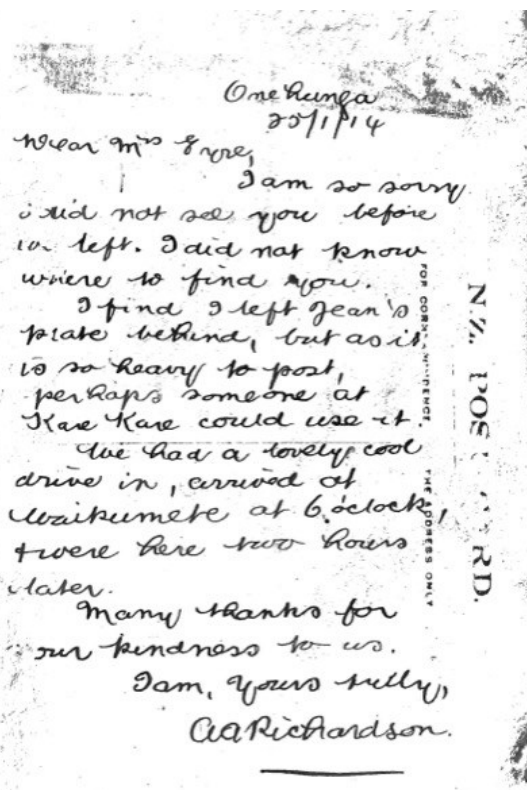 Onehunga
25/1/14
Dear Mrs Eyre,
I am so sorry
I did not see you before
we left. I did not know
where to find you.
I find I left Jean's
plate behind, but as it
is so heavy to post,
perhaps someone at
Kare Kare could use it.
We had a lovely cool
drive in, arrived at
Waikumete at 6.o'clock,
& were here two hours
later.
Many thanks for
your kindness to us.
I am, Yours tully,
A A Richardson.
N.Z. POST CARD.
FOR CORRESPONDENCE.
THE ADDRESS ONLY